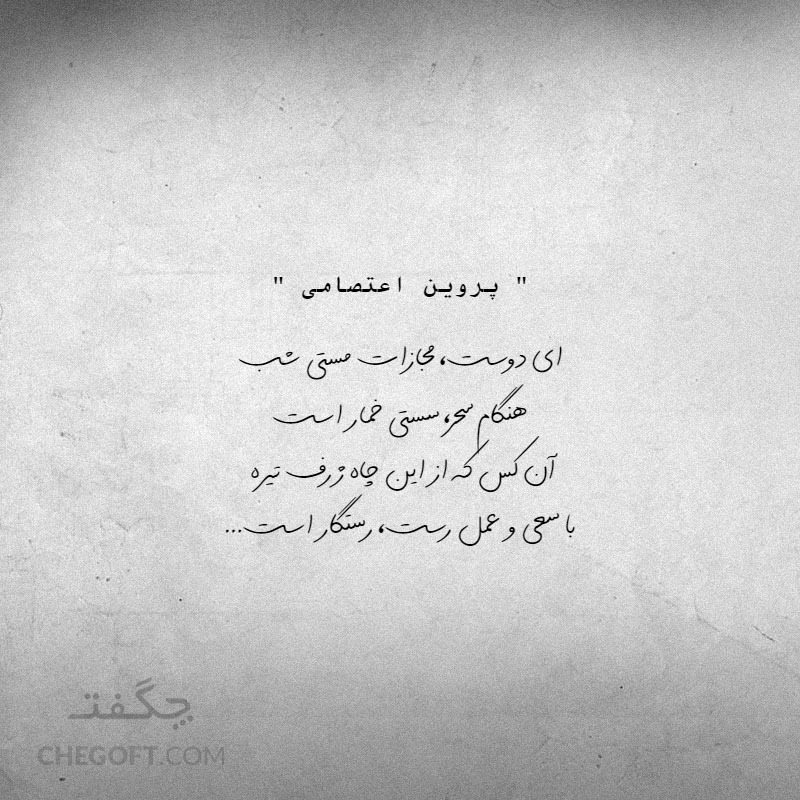 " پروین اعتصامی "
ای دوست، مجازات مستی شب
هنگام سحر، سستی خمار است
آن کس که از این چاه ژرف تیره
با سعی و عمل رست، رستگار است...
چگفتـ
CHEGOFT.COM